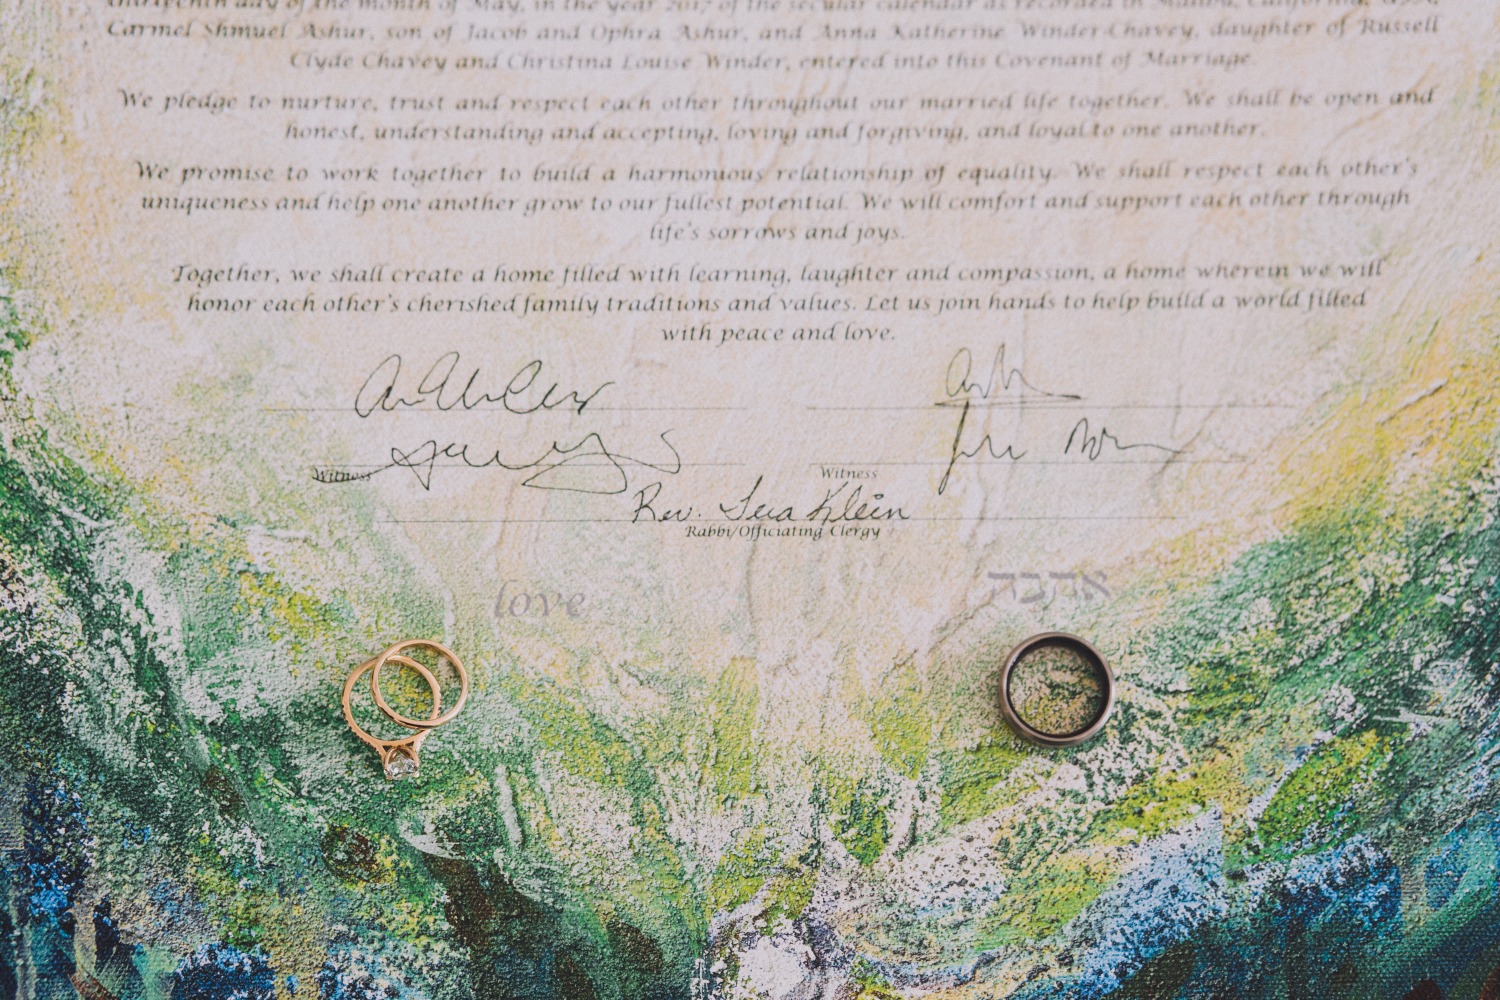 thirteenth day of the month of May, in the year 2017 of the secular calendar as recorded in Malibu, California, USA,
Carmel Shmuel Ashur, son of Jacob and Ophra Ashur, and Anna Katherine Winder-Chavey, daughter of Russell
Clyde Chavey and Christina Louise Winder, entered into this Covenant of Marriage.
We pledge to nurture, trust and respect each other throughout our married life together. We shall be open and
honest, understanding and accepting, loving and forgiving, and loyal to one another.
We promise to work together to build a harmonious relationship of equality. We shall respect each other's
uniqueness and help one another grow to our fullest potential. We will comfort and support each other through
life's sorrows and joys.
Together, we shall create a home filled with learning, laughter and compassion, a home wherein we will
honor each other's cherished family traditions and values. Let us join hands to help build a world filled
with peace and love.
Witness Witness
Rev. Klein
Rabbi/Officiating Clergy
love אהבה